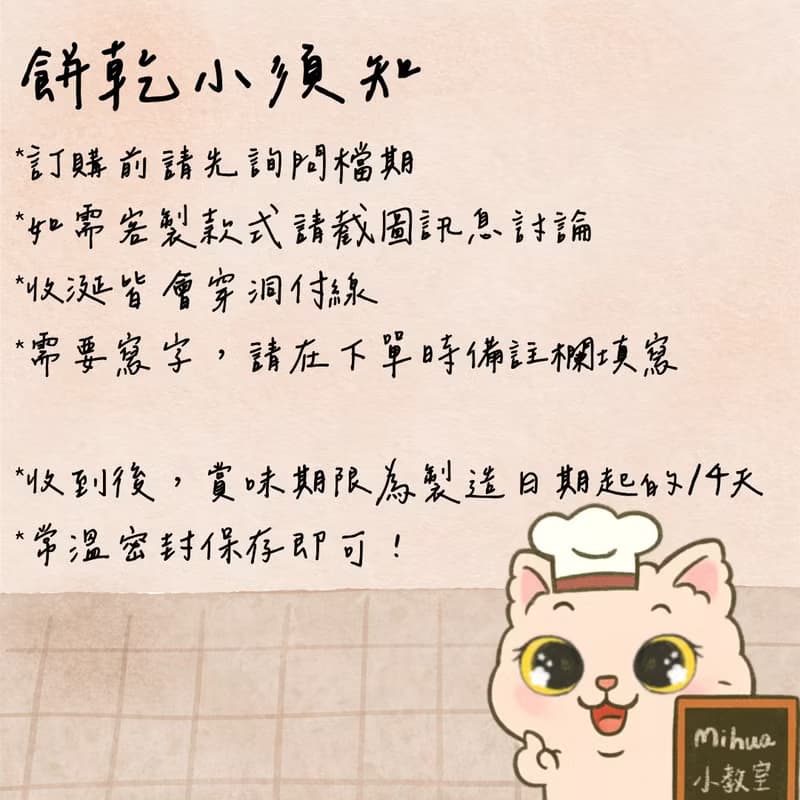 餅乾小須知
*訂購前請先詢問檔期
*如需客製款式請截圖訊息討論
*收涎皆會穿洞付線
*需要寫字，請在下單時備註欄填寫
*收到後，賞味期限為製造日期起的14天
*常溫密封保存即可！
Mihua
小教室